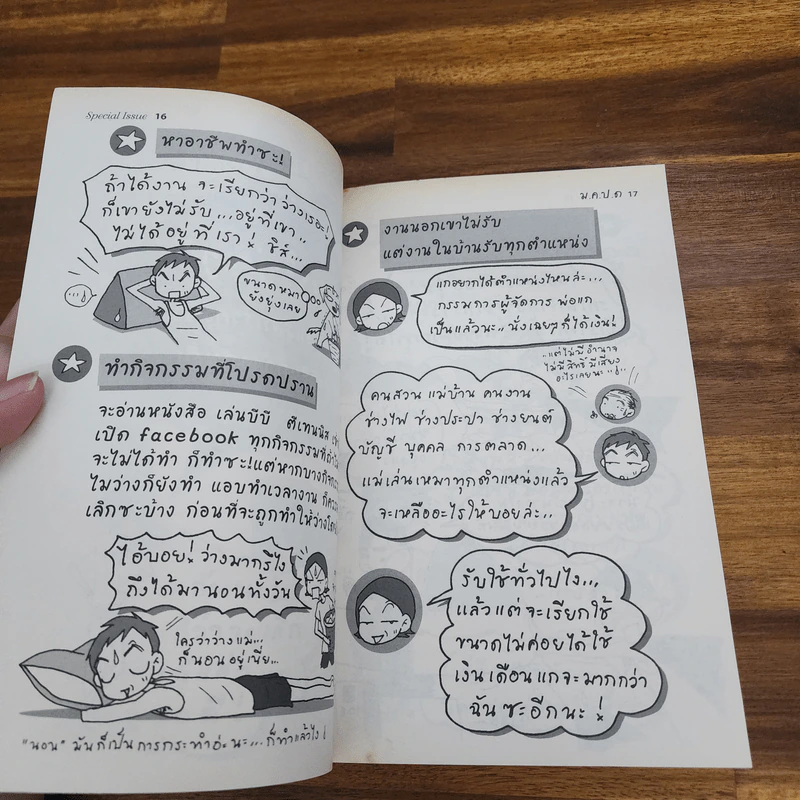 Special Issue 16
หาอาชีพทำซะ!
ถ้าได้งาน จะเรียกว่าว่างเรอะ!
ก็เขายังไม่รับ...อยู่ที่เขา..
ไม่ได้อยู่ที่เรา! ชิส์...
ขนาดหมา
ยังยุ่งเลย
ทำกิจกรรมที่โปรดปราน
จะอ่านหนังสือ เล่นบีบี ตีเทนนิส
เปิด facebook ทุกกิจกรรมที่
จะไม่ได้ทำ ก็ทำซะ! แต่หากบาง
ไม่ว่างก็ยังทำ แอบทำเวลางาน
เลิกซะบ้าง ก่อนที่จะถูกทำให้ว่าง
ไอ้บอย! ว่างมากรึไง
ถึงได้มานอนทั้งวัน
ใครว่าว่างแม่...
ก็นอนอยู่เนี่ย...
"นอน" มันก็เป็นการกระทำอ่ะนะ...ก็ทำแล้วไง!
ม.ค.ป.ด 17
งานนอกเขาไม่รับ
แต่งานในบ้านรับทุกตำแหน่ง
แกอยากได้ตำแหน่งไหนล่ะ...
กรรมการผู้จัดการ พ่อแก
เป็นแล้วนะ.. นั่งเฉยๆ ก็ได้เงิน!
..แต่ไม่มีอำนาจ
ไม่มีสิทธิ์มีเสียง
อะไรเลยนะ..!
คนสวน แม่บ้าน คนงาน
ช่างไฟ ช่างประปา ช่างยนต์
บัญชี บุคคล การตลาด...
แม่เล่นเหมาทุกตำแหน่งแล้ว
จะเหลืออะไรให้บอยล่ะ..
รับใช้ทั่วไปไง...
แล้วแต่จะเรียกใช้
ขนาดไม่ค่อยได้ใช้
เงินเดือนแกจะมากกว่า
ฉันซะอีกนะ!